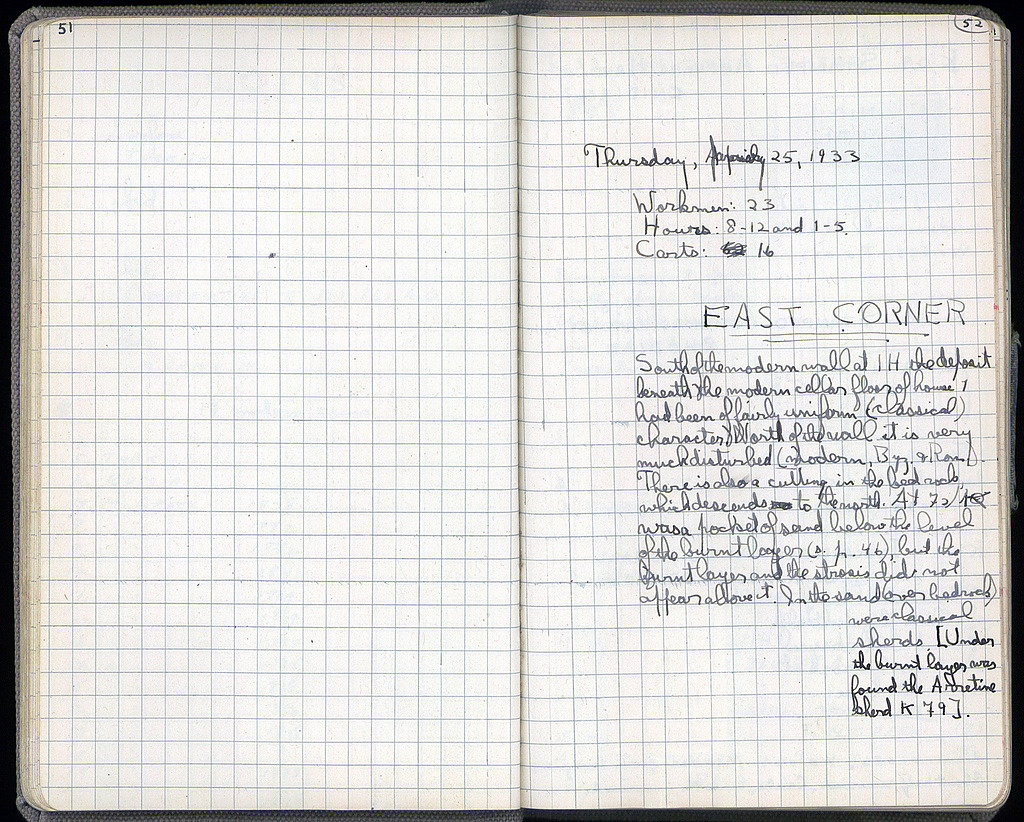 51
52
Thursday, 25, 1933
Workmen: 23
Hours: 8-12 and 1-5.
Carts: 16
EAST CORNER
South of the modern wall at 1 H the deposit
beneath the modern cellar floor of house 1
had been of fairly uniform (classical)
character. North of the wall it is very
much disturbed (modern, Byz. & Rom.).
There is also a cutting in the bedrock,
which descends to the north. At 72/
was a pocket of sand below the level
of the burnt layer (s. p. 46), but the
burnt layer and the strosis did not
appear above it. In the sand (over bedrock)
were classical
sherds. [Under
the burnt layer was
found the Arretine
sherd K 79].